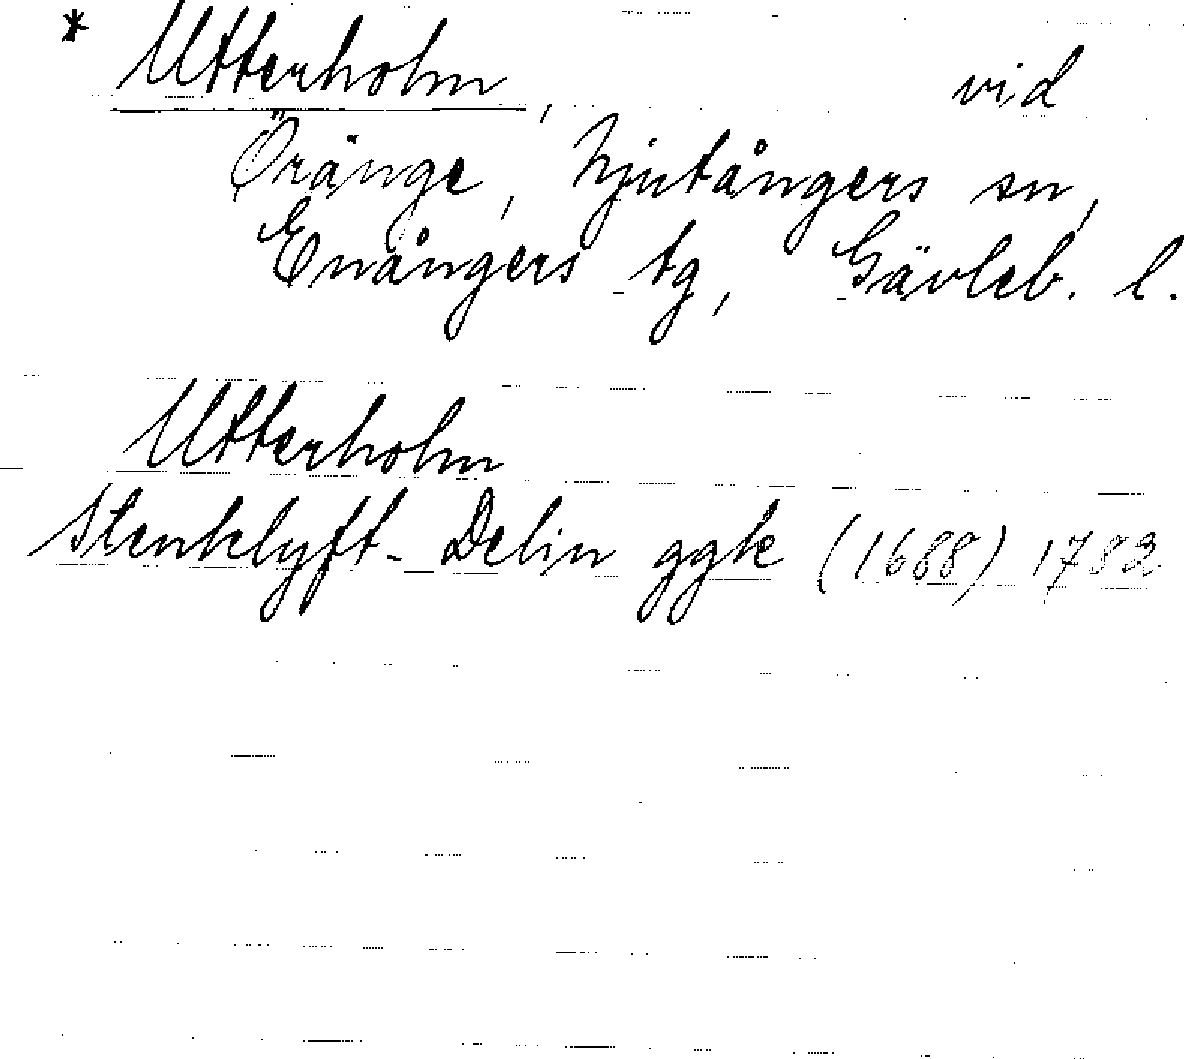 * Utterholm, vid
Öränge, Njutångers sn,
Enångers tg, Gävleb. l.
Utterholm
Stenklyft-Delin ggk (1688) 1782